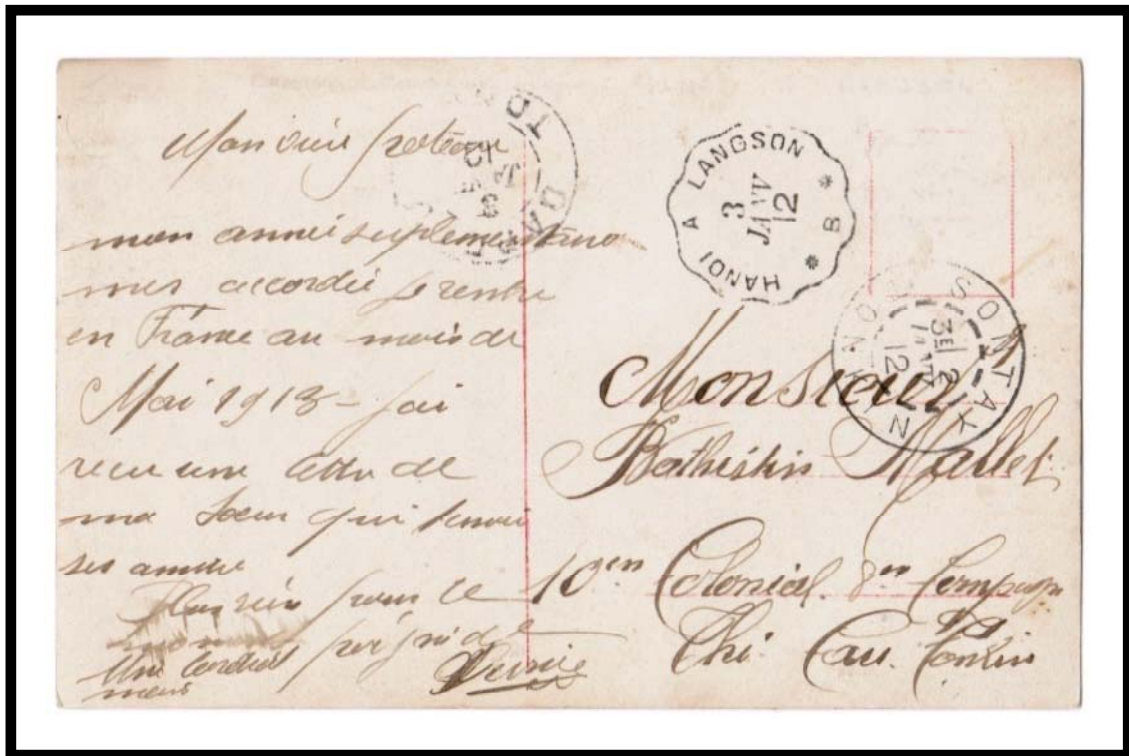 Mon vieu
mon année suplementere
mes accordée je rentre
en France au mois de
Mai 1913 - jai
recu une lettre de
ma Sœur qui tenvoi
ses amitié
Plus rien pour le
Une cordial poigné de
main
HANOI A LANGSON
3
JANV
12
B
SONTAY
3E
2
JANV
12
DAP
JANV
12
Monsieur
Bathistin Mallet
10en Colonial. 8en Compagn
Thi. Cau. Tonkin